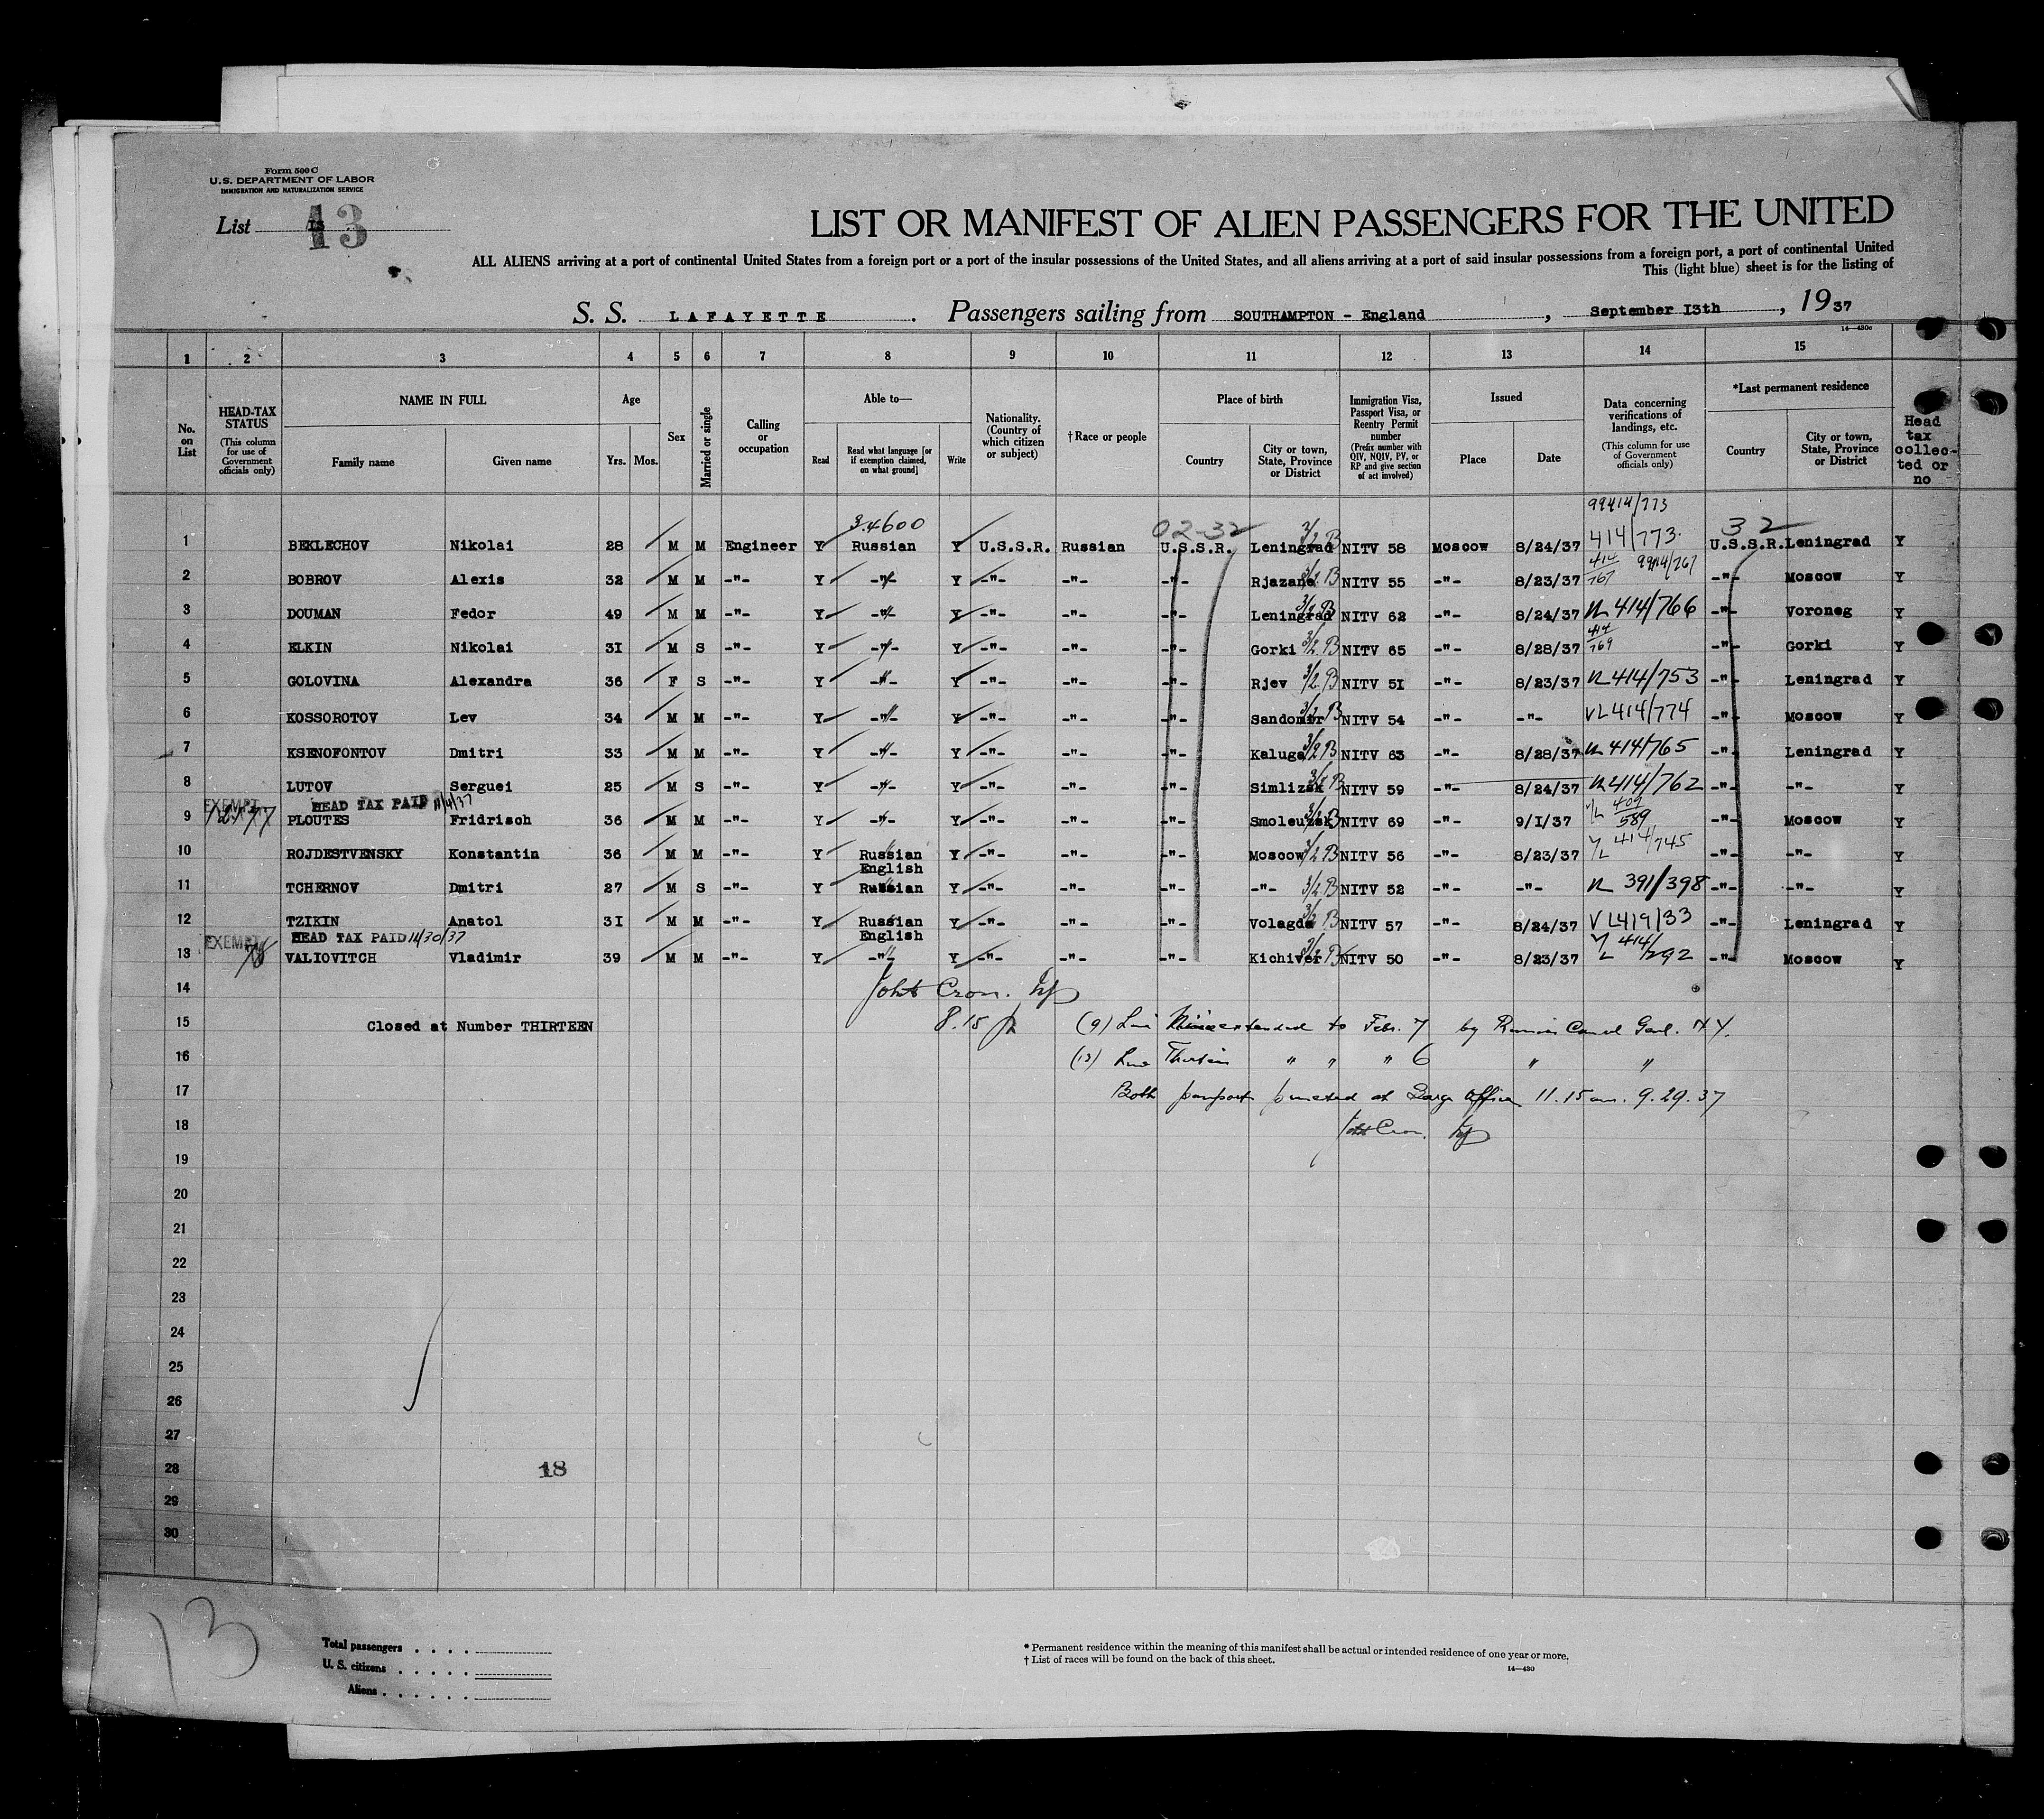 Form 500 C
U.S. DEPARTMENT OF LABOR
IMMIGRATION AND NATURALIZATION SERVICE
List 13
13
LIST OR MANIFEST OF ALIEN PASSENGERS FOR THE UNITED
ALL ALIENS arriving at a port of continental United States from a foreign port or a port of the insular possessions of the United States, and all aliens arriving at a port of said insular possessions from a foreign port, a port of continental United
This (light blue) sheet is for the listing of
S. S. LAFAYETTE . Passengers sailing from SOUTHAMPTON - England , September I3th , 19 37
14—430c
1 2 3 4 5 6 7 8 9 10 11 12 13 14 15
No. on List
HEAD-TAX STATUS (This column for use of Government officials only)
NAME IN FULL
Family name Given name
Age
Yrs. Mos.
Sex
Married or single
Calling or occupation
Able to—
Read
Read what language [or if exemption claimed, on what ground]
Write
Nationality. (Country of which citizen or subject)
† Race or people
Place of birth
Country
City or town, State, Province or District
Immigration Visa, Passport Visa, or Reentry Permit number
(Prefix number with QIV, NQIV, PV, or RP and give section of act involved)
Issued
Place Date
Data concerning verifications of landings, etc.
(This column for use of Government officials only)
*Last permanent residence
Country
City or town, State, Province or District
Head tax collec-ted or no
3.4600 02-32 99414/773 32
1 BEKLECHOV Nikolai 28 M M Engineer Y Russian Y U.S.S.R. Russian U.S.S.R. Leningrad 3/2 B NITV 58 Moscow 8/24/37 414/773 U.S.S.R. Leningrad Y
2 BOBROV Alexis 32 M M -"- Y -"- Y -"- -"- -"- Rjazane 3/2 B NITV 55 -"- 8/23/37 414/767 99414/767 -"- Moscow Y
3 DOUMAN Fedor 49 M M -"- Y -"- Y -"- -"- -"- Leningrad 3/2 B NITV 62 -"- 8/24/37 414/766 -"- Voroneg Y
4 ELKIN Nikolai 3I M S -"- Y -"- Y -"- -"- -"- Gorki 3/2 B NITV 65 -"- 8/28/37 414/769 -"- Gorki Y
5 GOLOVINA Alexandra 36 F S -"- Y -"- Y -"- -"- -"- Rjev 3/2 B NITV 5I -"- 8/23/37 414/753 -"- Leningrad Y
6 KOSSOROTOV Lev 34 M M -"- Y -"- Y -"- -"- -"- Sandomir 3/2 B NITV 54 -"- -"- VL 414/774 -"- Moscow Y
7 KSENOFONTOV Dmitri 33 M M -"- Y -"- Y -"- -"- -"- Kaluga 3/2 B NITV 63 -"- 8/28/37 414/765 -"- Leningrad Y
8 LUTOV Serguei 25 M S -"- Y -"- Y -"- -"- -"- Simlizsk 3/2 B NITV 59 -"- 8/24/37 414/762 -"- -"- Y
EXEMPT HEAD TAX PAID 11/4/37
9 PLOUTES Fridrisch 36 M M -"- Y -"- Y -"- -"- -"- 3/2 B NITV 69 -"- 9/I/37 409/589 -"- Moscow Y
10 ROJDESTVENSKY Konstantin 36 M M -"- Y Russian English Y -"- -"- -"- Moscow 3/2 B NITV 56 -"- 8/23/37 414/745 -"- -"- Y
11 TCHERNOV Dmitri 27 M S -"- Y Russian Y -"- -"- -"- -"- 3/2 B NITV 52 -"- -"- 391/398 -"- -"- Y
12 TZIKIN Anatol 3I M M -"- Y Russian English Y -"- -"- -"- Volagda 3/2 B NITV 57 -"- 8/24/37 VL 419/33 -"- Leningrad Y
EXEMPT 78 HEAD TAX PAID 11/30/37
13 VALIOVITCH Vladimir 39 M M -"- Y -"- Y -"- -"- -"- Kichiver 3/2 B NITV 50 -"- 8/23/37 414/292 -"- Moscow Y
14 John Cron. Insp
15 Closed at Number THIRTEEN 8.15 (9) Line extended to Febr. 7 by Russian Consul Genl. N.Y.
16 (13) Line Thirteen " " " 6 " "
17 Both passports presented at Barge Office 11.15 am. 9.29.37
18 John Cron. Insp
19
20
21
22
23
24
25
26
27
28
18
29
30
13
Total passengers . . . .
U. S. citizens . . . . .
Aliens . . . . . .
* Permanent residence within the meaning of this manifest shall be actual or intended residence of one year or more.
† List of races will be found on the back of this sheet.
14—430